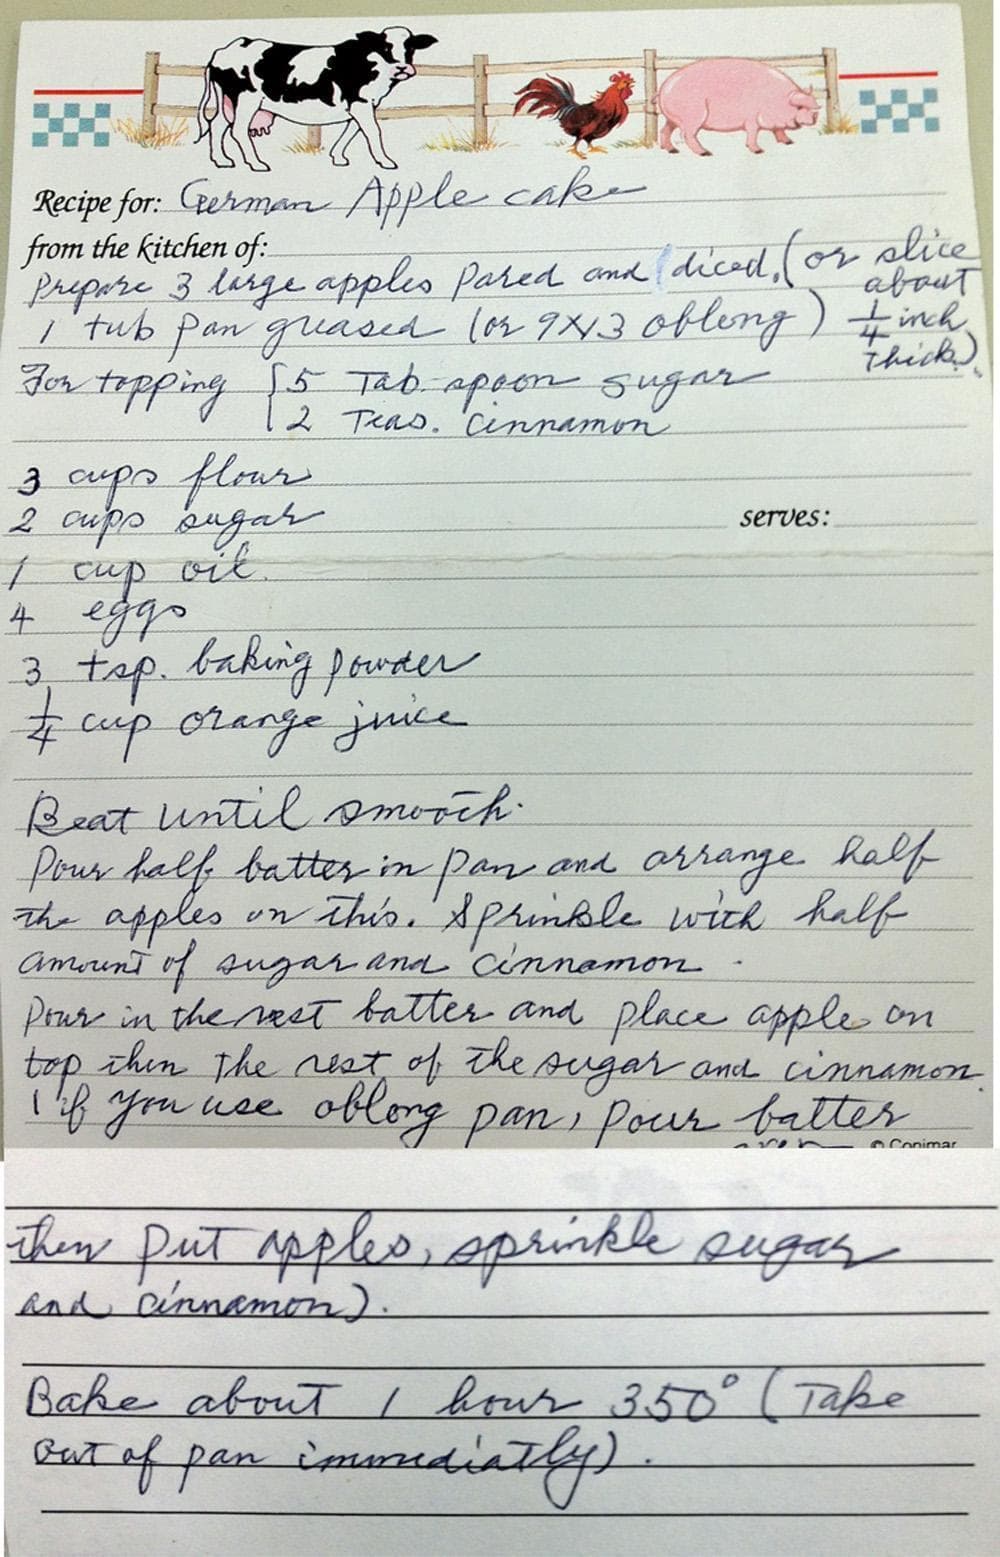 Recipe for: German Apple cake
from the kitchen of:
Prepare 3 large apples pared and diced. (or slice
about
1 tub pan greased (or 9x13 oblong) 1/4 inch
thick).
For topping { 5 Tab. spoon sugar
2 Teas. cinnamon
3 cups flour
2 cups sugar
serves:
1 cup oil.
4 eggs
3 tsp. baking powder
1/4 cup orange juice
Beat until smooth.
Pour half batter in pan and arrange half
the apples on this. Sprinkle with half
amount of sugar and cinnamon.
Pour in the rest batter and place apple on
top then the rest of the sugar and cinnamon.
(if you use oblong pan, pour batter
© Conimar
then put apples, sprinkle sugar
and cinnamon).
Bake about 1 hour 350° (Take
out of pan immediatly).